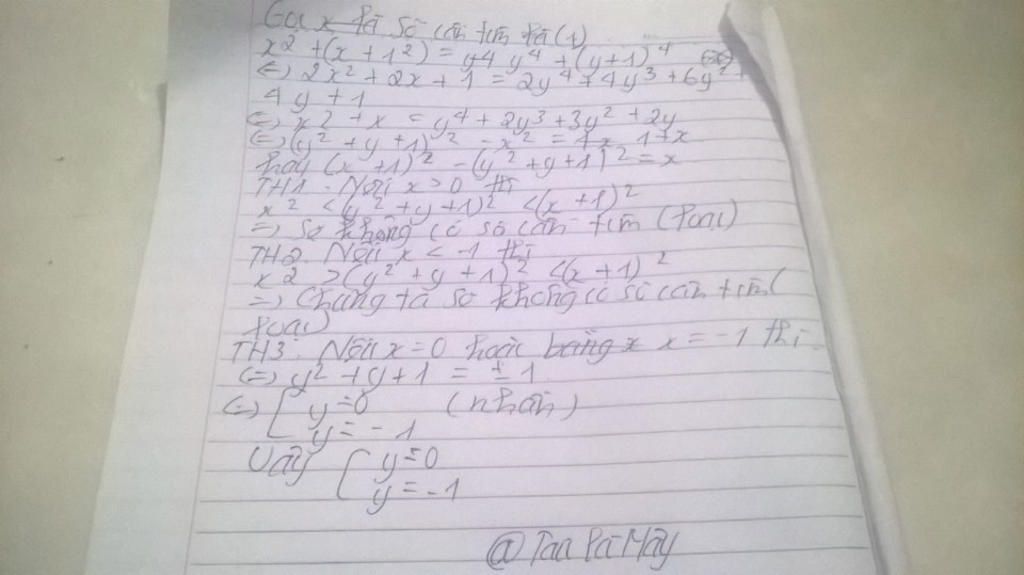 Gọi x là số cần tìm là (1)
x² + (x + 1²) = y4 y⁴ + (y+1)⁴
⇔ 2x² + 2x + 1 = 2y⁴ + 4y³ + 6y² +
4y + 1
⇔ x2 + x = y⁴ + 2y³ + 3y² + 2y
⇔ (y² + y + 1)² - x² = 1 + x
hay (x + 1)² - (y² + y + 1)² = x
TH1. Nếu x > 0 thì
x² < (y² + y + 1)² < (x + 1)²
⇒ số không có số cần tìm (loại)
TH2. Nếu x < -1 thì
x2 > (y² + y + 1)² < (x + 1)²
⇒ Chúng ta số không có số cần tìm (
loại)
TH3. Nếu x = 0 hoặc bằng x x = -1 thì
⇔ y² + y + 1 = ± 1
⇔ [ y = 0 (nhận)
y = -1
Vậy [ y = 0
y = -1